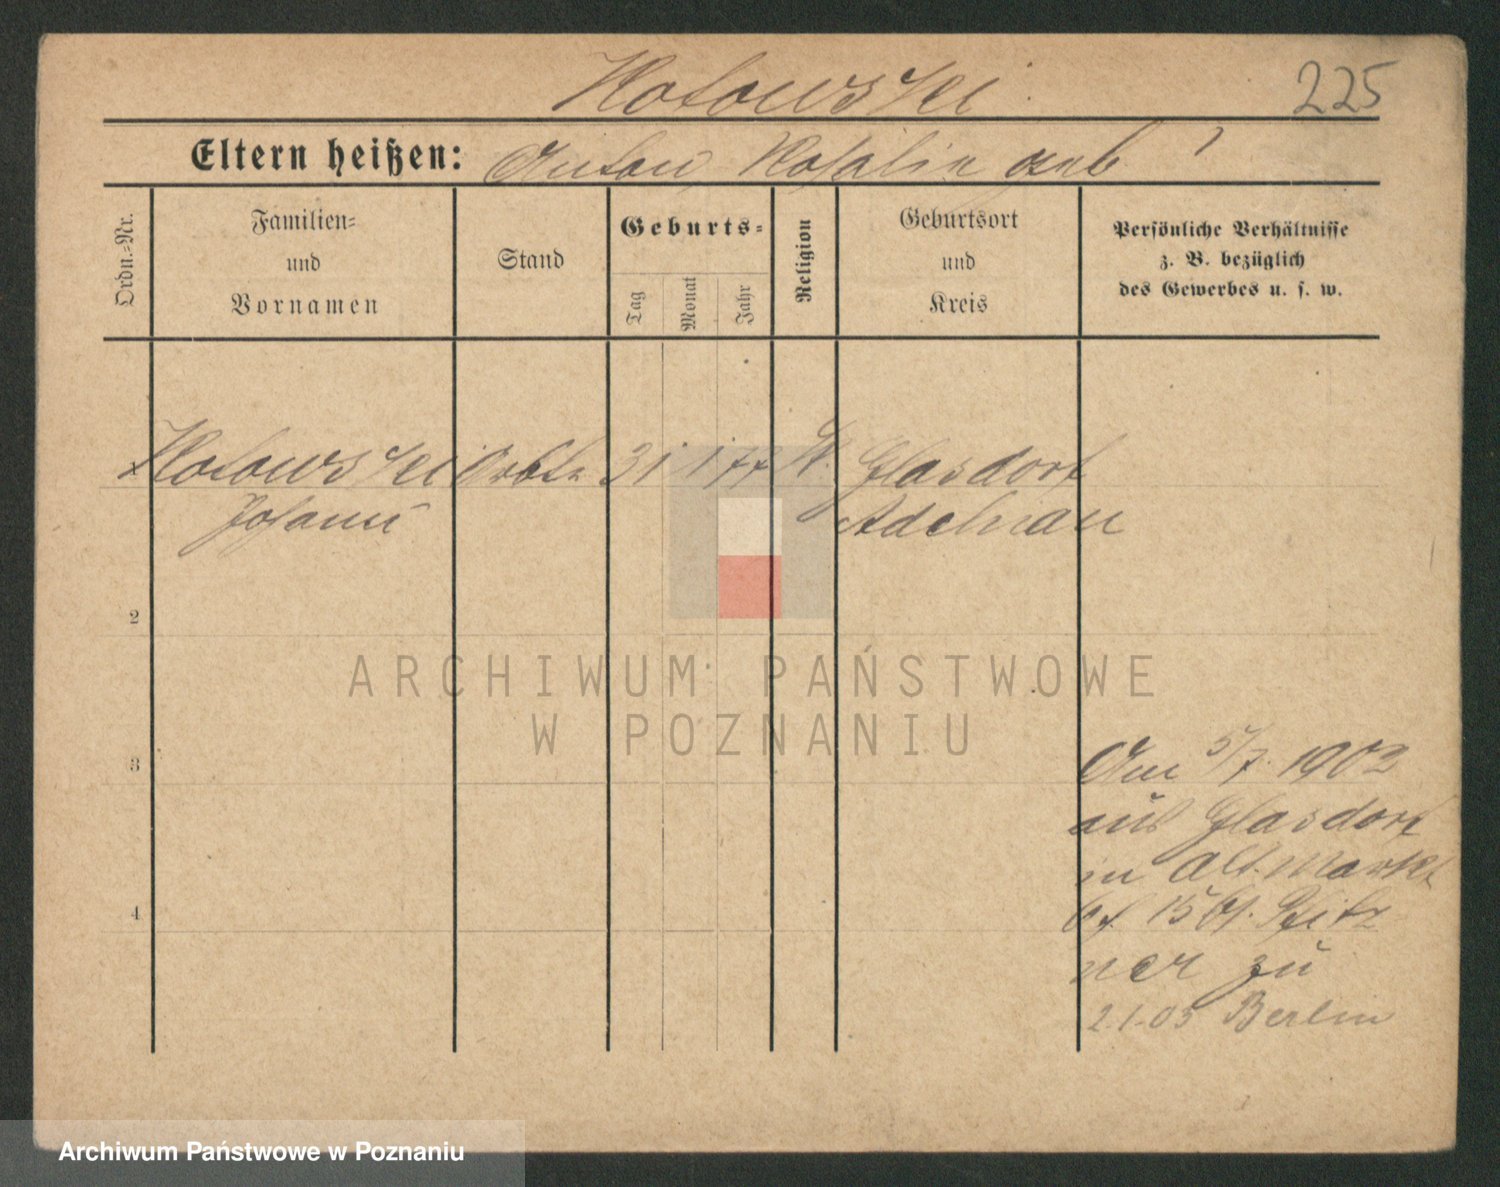 Kotowski
225
Eltern heißen: Anton, Rosalie geb ?
Ordn.=Nr.
Familien=
und
Vornamen
Stand
Geburts=
Tag
Monat
Jahr
Religion
Geburtsort
und
Kreis
Persönliche Verhältnisse
z. B. bezüglich
des Gewerbes u. s. w.
Kotowski Arbtr 31 1 77 K. Glasdorf
Johann Adelnau
2
3
4
Am 5/7. 1902
aus Glasdorf
in Alt. Markt
15 bei Pfitz
ner zu
2.1.03 Berlin
ARCHIWUM PAŃSTWOWE
W POZNANIU
Archiwum Państwowe w Poznaniu